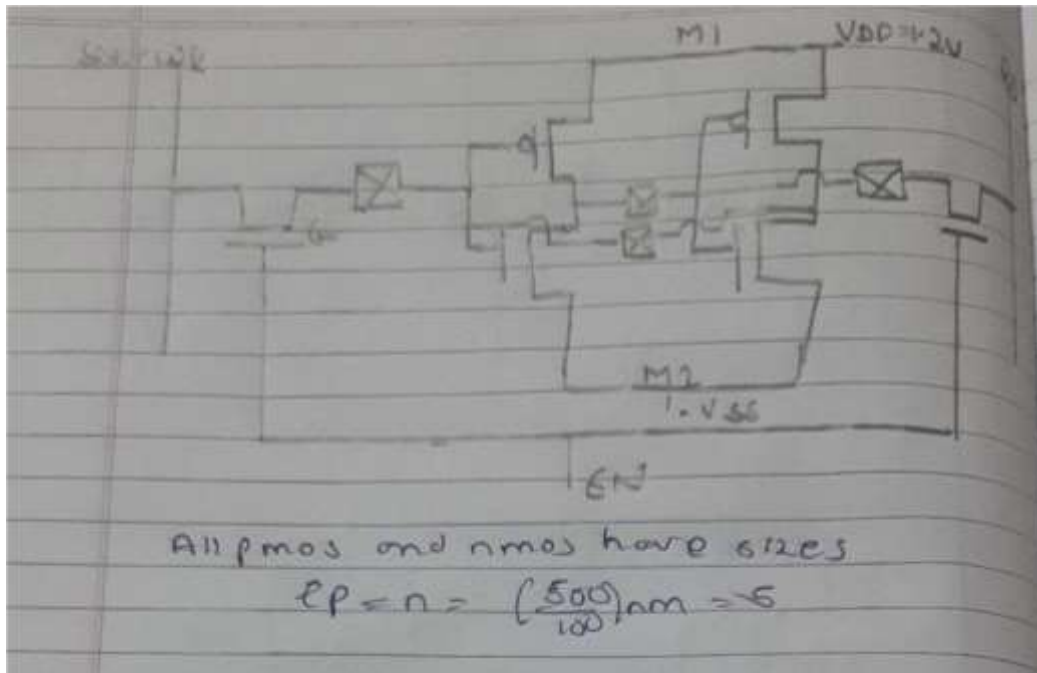 M1
VDD=1.2V
M2
VSS
EN
All pmos and nmos have sizes
= n = (500/100)nm = 5